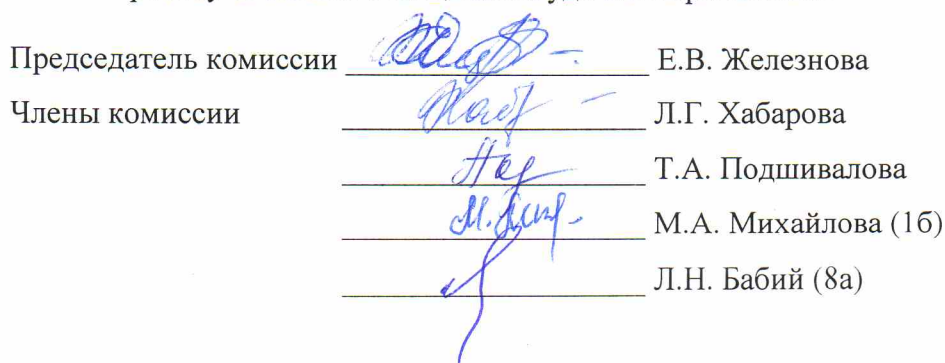 Председатель комиссии Е.В. Железнова
Члены комиссии Л.Г. Хабарова
Т.А. Подшивалова
М.А. Михайлова (1б)
Л.Н. Бабий (8а)